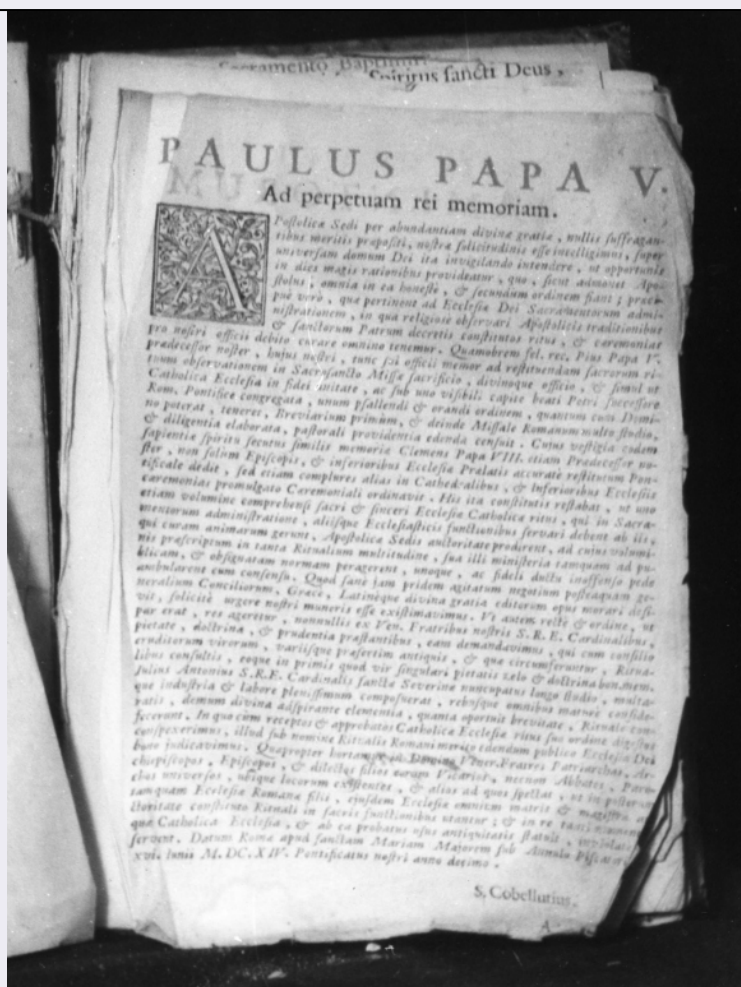 Sacramento Baptismi
Spiritus sancti Deus,
PAULUS PAPA V.
Ad perpetuam rei memoriam.
APostolicæ Sedi per abundantiam divinæ gratiæ, nullis suffragan-
tibus meritis præpositi, nostræ solicitudinis esse intelligimus, super
universam domum Dei ita invigilando intendere, ut opportunis
in dies magis rationibus provideatur, quo, sicut admonet Apo-
stolus, omnia in ea honestè, & secundum ordinem fiant; præci-
puè verò, quæ pertinent ad Ecclesiæ Dei Sacramentorum admi-
nistrationem, in qua religiosè observari Apostolicis traditionibus
& sanctorum Patrum decretis constitutos ritus, & cæremonias
pro nostri officii debito curare omnino tenemur. Quamobrem fel. rec. Pius Papa V.
prædecessor noster, hujus nostri, tunc sui officii memor ad restituendam sacrorum ri-
tuum observationem in Sacrosancto Missæ sacrificio, divinoque officio, & simul ut
Catholica Ecclesia in fidei unitate, ac sub uno visibili capite beati Petri successore
Rom. Pontifice congregata, unum psallendi & orandi ordinem, quantum cum Domi-
no poterat, teneret, Breviarium primùm, & deinde Missale Romanum multo studio,
& diligentia elaborata, pastorali providentia edenda censuit. Cujus vestigia eodem
sapientiæ spiritu secutus similis memoriæ Clemens Papa VIII. etiam Prædecessor no-
ster, non solùm Episcopis, & inferioribus Ecclesiæ Prælatis accuratè restitutum Pon-
tificale dedit, sed etiam complures alias in Cathedralibus, & Inferioribus Ecclesiis
cæremonias promulgato Cæremoniali ordinavit. His ita constitutis restabat, ut uno
etiam volumine comprehensi sacri & sinceri Ecclesiæ Catholicæ ritus, qui in Sacra-
mentorum administratione, aliisque Ecclesiasticis functionibus servari debent ab iis,
qui curam animarum gerunt, Apostolicæ Sedis auctoritate prodirent, ad cujus volumi-
nis præscriptum in tanta Ritualium multitudine, sua illi ministeria tamquam ad pu-
blicam, & obsignatam normam peragerent, unoque, ac fideli ductu inoffenso pede
ambularent cum consensu. Quod sanè jam pridem agitatum negotium posteaquam ge-
neralium Conciliorum, Græcè, Latinèque divina gratia editorum opus morari desi-
vit, solicitè urgere nostri muneris esse existimavimus. Ut autem rectè & ordine, ut
par erat, res ageretur, nonnullis ex Ven. Fratribus nostris S.R.E. Cardinalibus,
pietate, doctrina, & prudentia præstantibus, eam demandavimus, qui cum consilio
eruditorum virorum, variisque præsertim antiquis, & quæ circumferuntur, Ritua-
libus consultis, eoque in primis quod vir singulari pietatis zelo & doctrina bon. mem.
Julius Antonius S.R.E. Cardinalis sanctæ Severinæ nuncupatus longo studio, multa-
que industria & labore plenissimum composuerat, rebusque omnibus maturè conside-
ratis, demum divina adspirante clementia, quanta oportuit brevitate, Rituale con-
fecerunt. In quo cùm receptos & approbatos Catholicæ Ecclesiæ ritus suo ordine digestos
conspexerimus, illud sub nomine Ritualis Romani meritò edendum publico Ecclesiæ Dei
bono judicavimus. Quapropter hortamur in Domino Vener. Fratres Patriarchas, Ar-
chiepiscopos, Episcopos, & dilectos filios eorum Vicarios, necnon Abbates, Paro-
chos universos, ubique locorum existentes, & alios ad quos spectat, ut in posterum
tamquam Ecclesiæ Romanæ filii, ejusdem Ecclesiæ omnium matris & magistræ au-
ctoritate constituto Rituali in sacris functionibus utantur; & in re tanti momenti
quæ Catholica Ecclesia, & ab ea probatus usus antiquitatis statuit, inviolatè
servent. Datum Romæ apud sanctam Mariam Majorem sub Annulo Piscatoris
xvi. Junii M.DC.XIV. Pontificatus nostri anno decimo.
S. Cobellutius.
A